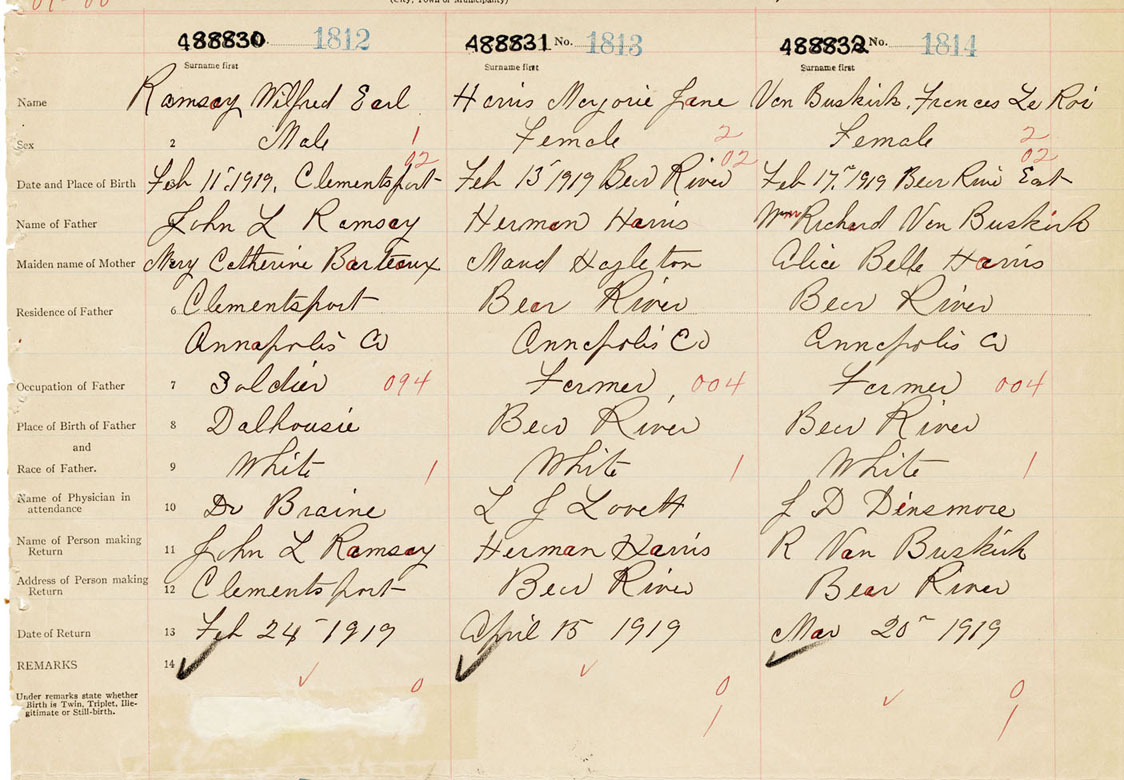 (City, Town or Municipality)
488830 No. 1812 488831 No. 1813 488832 No. 1814
Surname first Surname first Surname first
Name Ramsay Wilfred Earl Harris Marjorie Jane Van Buskirk, Frances Le Roi
Sex 2 Male 1 Female 2 Female 2
02 02 02
Date and Place of Birth Feb 11 1919, Clementsport Feb 13 1919 Bear River Feb 17, 1919 Bear River East
Name of Father John L Ramsay Herman Harris Wm Richard Van Buskirk
Maiden name of Mother Mary Catherine Barteaux Maud Hazleton Alice Belle Harris
Residence of Father 6 Clementsport Bear River Bear River
Annapolis Co Annapolis Co Annapolis Co
Occupation of Father 7 Soldier 094 Farmer 004 Farmer 004
Place of Birth of Father 8 Dalhousie Bear River Bear River
and
Race of Father. 9 White 1 White 1 White 1
Name of Physician in attendance 10 Dr Braine L J Lovett J D Dinsmore
Name of Person making Return 11 John L Ramsay Herman Harris R Van Buskirk
Address of Person making Return 12 Clementsport Bear River Bear River
Date of Return 13 Feb 24 1919 April 15 1919 Mar 20 1919
REMARKS 14
Under remarks state whether 0 0 0
Birth is Twin, Triplet, Ille-
gitimate or Still-birth. 1 1